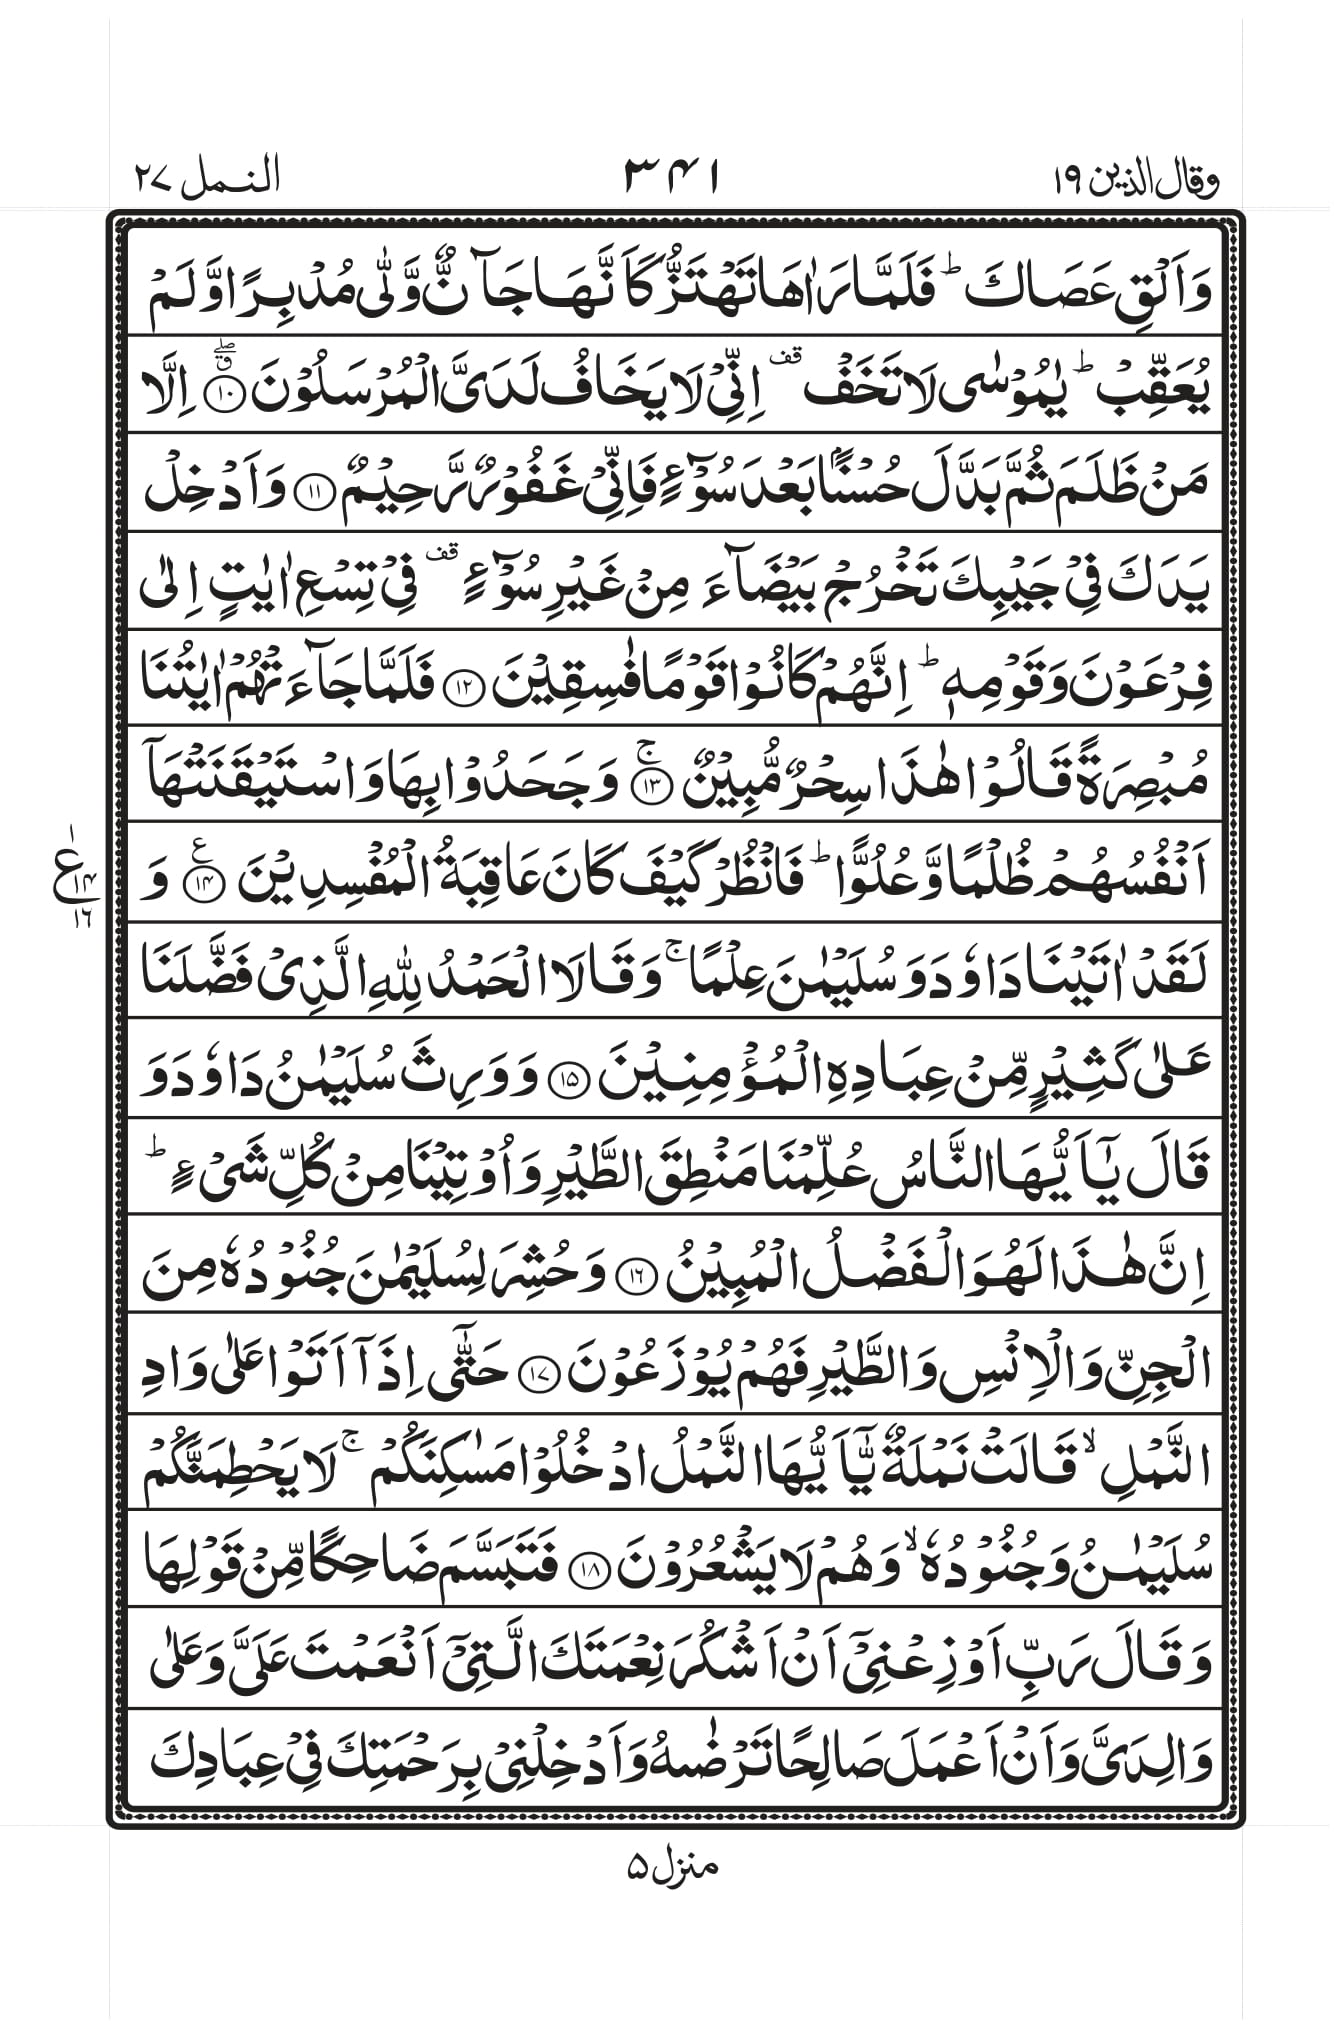 وقال الذین ۱۹
۳۴۱
النمل ۲۷
وَاَلۡقِ عَصَاكَ ؕ فَلَمَّا رَاٰهَا تَهۡتَزُّ كَاَنَّهَا جَآنٌّ وَّلّٰى مُدۡبِرًا وَّلَمۡ
يُعَقِّبۡ ؕ يٰمُوۡسٰى لَا تَخَفۡ قف اِنِّىۡ لَا يَخَافُ لَدَىَّ الۡمُرۡسَلُوۡنَ ۖق ۱۰ اِلَّا
مَنۡ ظَلَمَ ثُمَّ بَدَّلَ حُسۡنًۢا بَعۡدَ سُوۡٓءٍ فَاِنِّىۡ غَفُوۡرٌ رَّحِيۡمٌ ۱۱ وَاَدۡخِلۡ
يَدَكَ فِىۡ جَيۡبِكَ تَخۡرُجۡ بَيۡضَآءَ مِنۡ غَيۡرِ سُوۡٓءٍ قف فِىۡ تِسۡعِ اٰيٰتٍ اِلٰى
فِرۡعَوۡنَ وَقَوۡمِهٖ ؕ اِنَّهُمۡ كَانُوۡا قَوۡمًا فٰسِقِيۡنَ ۱۲ فَلَمَّا جَآءَتۡهُمۡ اٰيٰتُنَا
مُبۡصِرَةً قَالُوۡا هٰذَا سِحۡرٌ مُّبِيۡنٌ ۚ ۱۳ وَجَحَدُوۡا بِهَا وَاسۡتَيۡقَنَتۡهَاۤ
اَنۡفُسُهُمۡ ظُلۡمًا وَّعُلُوًّا ؕ فَانْظُرۡ كَيۡفَ كَانَ عَاقِبَةُ الۡمُفۡسِدِيۡنَ ع ۱۴ وَ
۱ ع ۱۴ ۱۶
لَقَدۡ اٰتَيۡنَا دَاوٗدَ وَسُلَيۡمٰنَ عِلۡمًا ۚ وَقَالَا الۡحَمۡدُ لِلّٰهِ الَّذِىۡ فَضَّلَنَا
عَلٰى كَثِيۡرٍ مِّنۡ عِبَادِهِ الۡمُؤۡمِنِيۡنَ ۱۵ وَوَرِثَ سُلَيۡمٰنُ دَاوٗدَ وَ
قَالَ يٰۤاَيُّهَا النَّاسُ عُلِّمۡنَا مَنۡطِقَ الطَّيۡرِ وَاُوۡتِيۡنَا مِنۡ كُلِّ شَىۡءٍ ؕ
اِنَّ هٰذَا لَهُوَ الۡفَضۡلُ الۡمُبِيۡنُ ۱۶ وَحُشِرَ لِسُلَيۡمٰنَ جُنُوۡدُهٗ مِنَ
الۡجِنِّ وَالۡاِنۡسِ وَالطَّيۡرِ فَهُمۡ يُوۡزَعُوۡنَ ۱۷ حَتّٰٓى اِذَاۤ اَتَوۡا عَلٰى وَادِ
النَّمۡلِ ۙ قَالَتۡ نَمۡلَةٌ يّٰۤاَيُّهَا النَّمۡلُ ادۡخُلُوۡا مَسٰكِنَكُمۡ ۚ لَا يَحۡطِمَنَّكُمۡ
سُلَيۡمٰنُ وَجُنُوۡدُهٗ ۙ وَهُمۡ لَا يَشۡعُرُوۡنَ ۱۸ فَتَبَسَّمَ ضَاحِكًا مِّنۡ قَوۡلِهَا
وَقَالَ رَبِّ اَوۡزِعۡنِىۡۤ اَنۡ اَشۡكُرَ نِعۡمَتَكَ الَّتِىۡۤ اَنۡعَمۡتَ عَلَىَّ وَعَلٰى
وَالِدَىَّ وَاَنۡ اَعۡمَلَ صَالِحًا تَرۡضٰٮهُ وَاَدۡخِلۡنِىۡ بِرَحۡمَتِكَ فِىۡ عِبَادِكَ
منزل ۵